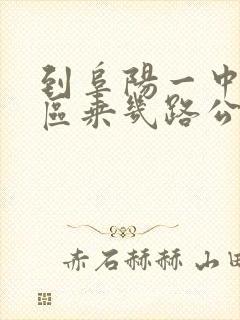 到阜陽一中
區乘幾路公
赤石赫赫山田